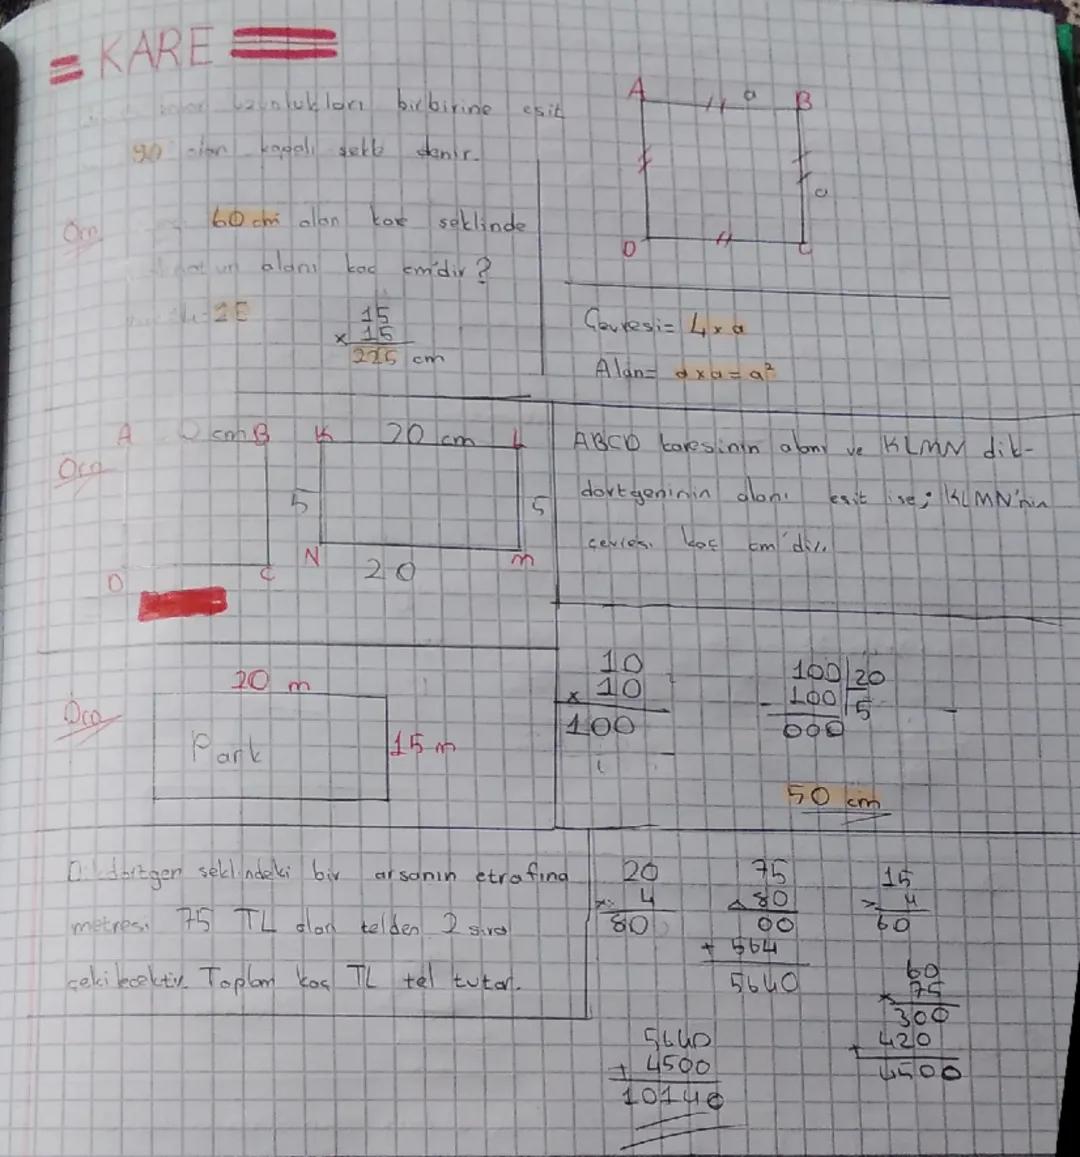 KARE
uzunlukları birbirine eşit
90 olan kapalı şekle denir.
A a B
a
D C
Örn
60 cm olan kare şeklinde
alanı kaç cm'dir?
15
x 15
225 cm
Çevresi= 4xa
Alan= axa=a²
Örn
A cm B
D C
K 20 cm L
5 5
N 20 m
ABCD karesinin alanı ve KLMN dik-
dörtgeninin alanı eşit ise; KLMN'nin
çevresi kaç cm'dir.
10
x 10
100
100 20
- 100 5
000
50 cm
Örn
20 m
Park
15 m
şeklindeki bir arsanın etrafına
metresi 75 TL olan telden 2 sıra
çekilecektir. Toplam kaç TL tel tutar.
20
x 4
80
75
x 80
00
+ 564
5640
15
x 4
60
60
x 75
300
+ 420
4500
5640
+ 4500
10140